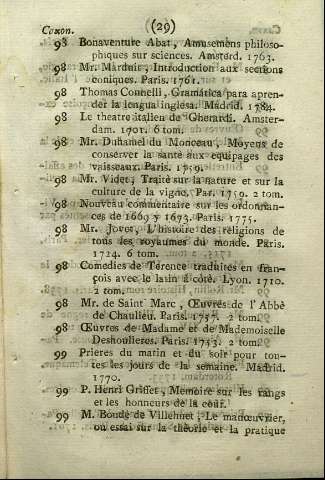 Coxon. ((29)
98 Bonaventure Abat, Amusemens philoso-
phiques sur sciences. Amsterd. 1763.
98 Mr. Introduction aux sections
coniques. Paris. 1761.
98 Thomas Connelli, Gramática para apren-
der la lengua inglesa. Madrid. 1784.
98 Le theatre italien de Gherardi. Amster-
dam. 1701. 6 tom.
98 Mr. Duhamel du Monceau, Moyens de
conserver la santé aux equipages des
vaisseaux. Paris. 1759.
98 Mr. Videt, Traité sur la nature et sur la
culture de la vigne. Par. 1759. 2 tom.
98 Nouveau commentaire sur les ordonnan-
ces de 1669 y 1673. Paris. 1775.
98 Mr. Jovet, L'histoire des religions de
tous les royaumes du monde. Paris.
1724. 6 tom.
98 Comedies de Térence traduites en fran-
çois avec le latin à côté. Lyon. 1710.
2 tom.
98 Mr. de Saint Marc, Œuvres de l'Abbè
de Chaulieu. Paris. 1757. 2 tom.
98 Œuvres de Madame et de Mademoiselle
Deshoulieres. Paris. 1753. 2 tom.
99 Prieres du matin et du soir pour tou-
tes les jours de la semaine. Madrid.
1770.
99 P. Henri Griffet, Memoire sur les rangs
et les honneurs de la cour.
99 M. Boudé de Villehuet, Le manœuvrier,
ou essai sur la théorie et la pratique